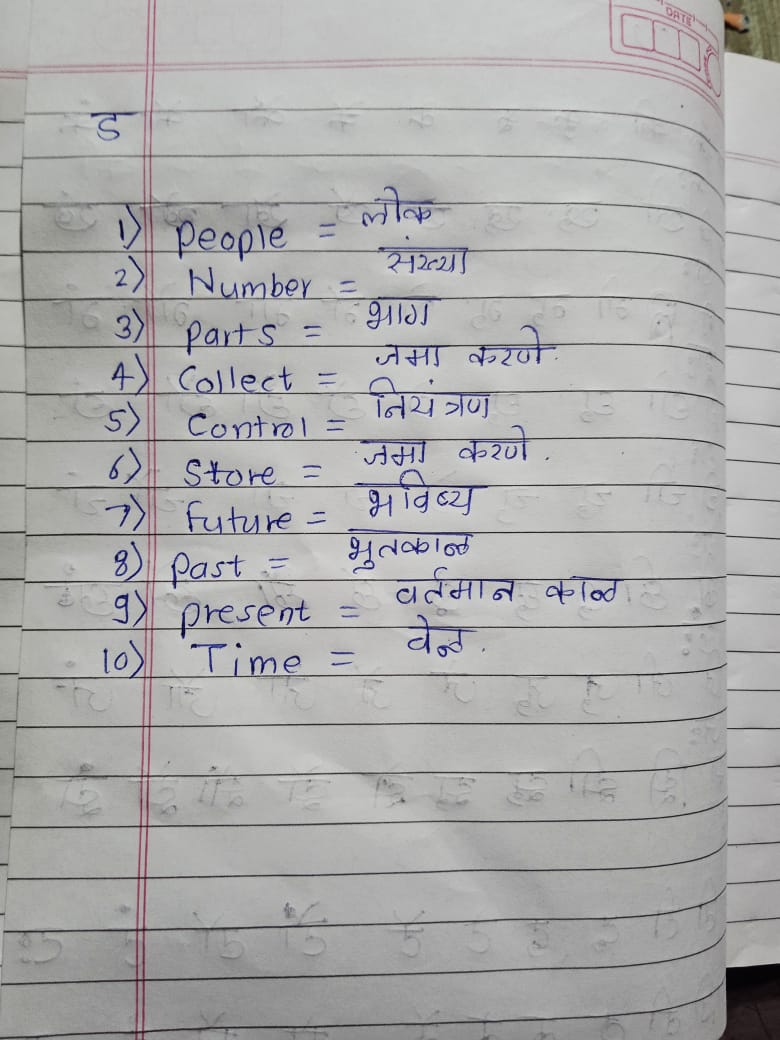 DATE
ड
1) people = लोक
2) Number = संख्या
3) parts = भाग
4) Collect = जमा करणे.
5) Control = नियंत्रण
6) Store = जमा करणे.
7) future = भविष्य
8) past = भुतकाळ
9) present = वर्तमान काळ
10) Time = वेळ.